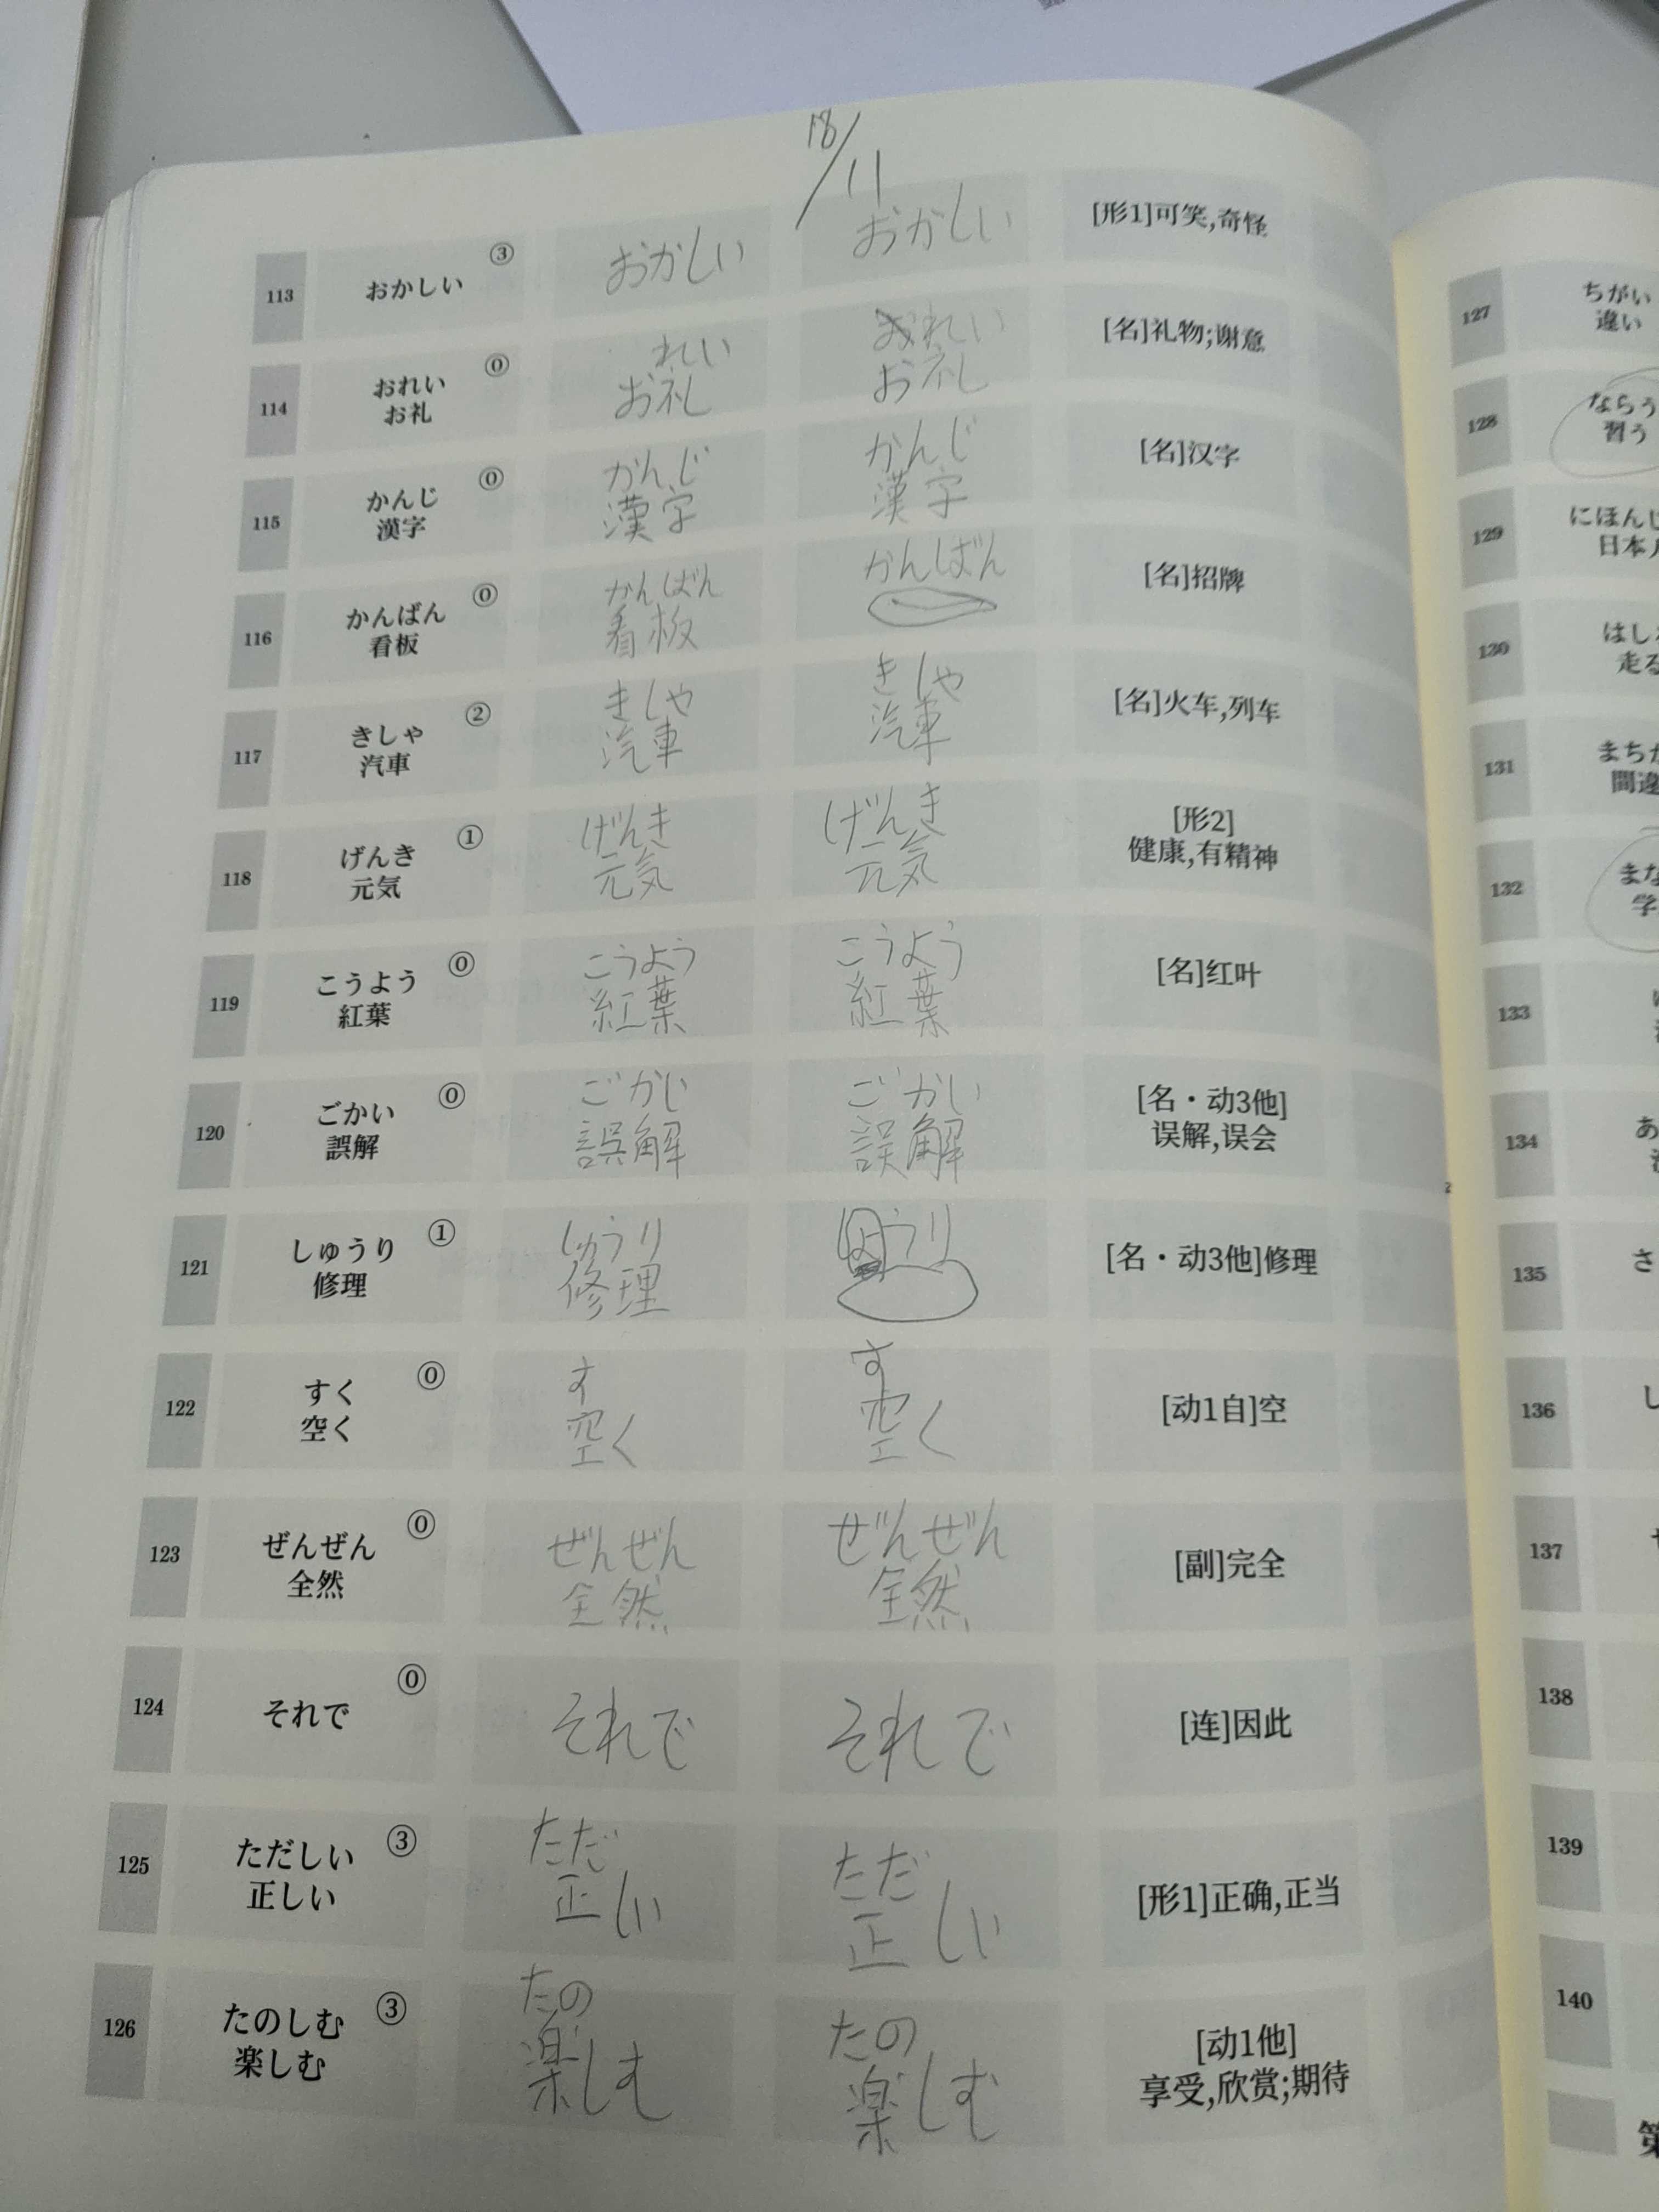 18/11
113
おかしい
③
おかしい
おかしい
[形1]可笑,奇怪
114
おれい
お礼
⓪
れい
お礼
おれい
お礼
[名]礼物;谢意
115
かんじ
漢字
⓪
かんじ
漢字
かんじ
漢字
[名]汉字
116
かんばん
看板
⓪
かんばん
看板
かんばん
[名]招牌
117
きしゃ
汽車
②
きしゃ
汽車
きしゃ
汽車
[名]火车,列车
118
げんき
元気
①
げんき
元気
げんき
元気
[形2]
健康,有精神
119
こうよう
紅葉
⓪
こうよう
紅葉
こうよう
紅葉
[名]红叶
120
ごかい
誤解
⓪
ごかい
誤解
ごかい
誤解
[名・动3他]
误解,误会
121
しゅうり
修理
①
しゅうり
修理
うり
[名・动3他]修理
122
すく
空く
⓪
す
空く
す
空く
[动1自]空
123
ぜんぜん
全然
⓪
ぜんぜん
全然
ぜんぜん
全然
[副]完全
124
それで
⓪
それで
それで
[连]因此
125
ただしい
正しい
③
ただ
正しい
ただ
正しい
[形1]正确,正当
126
たのしむ
楽しむ
③
たの
楽しむ
たの
楽しむ
[动1他]
享受,欣赏;期待
127
ちがい
違い
128
ならう
習う
129
にほんじ
日本
130
はし
走る
131
まちが
間違
132
まな
学
133
134
あ
135
さ
136
し
137
138
139
140
第